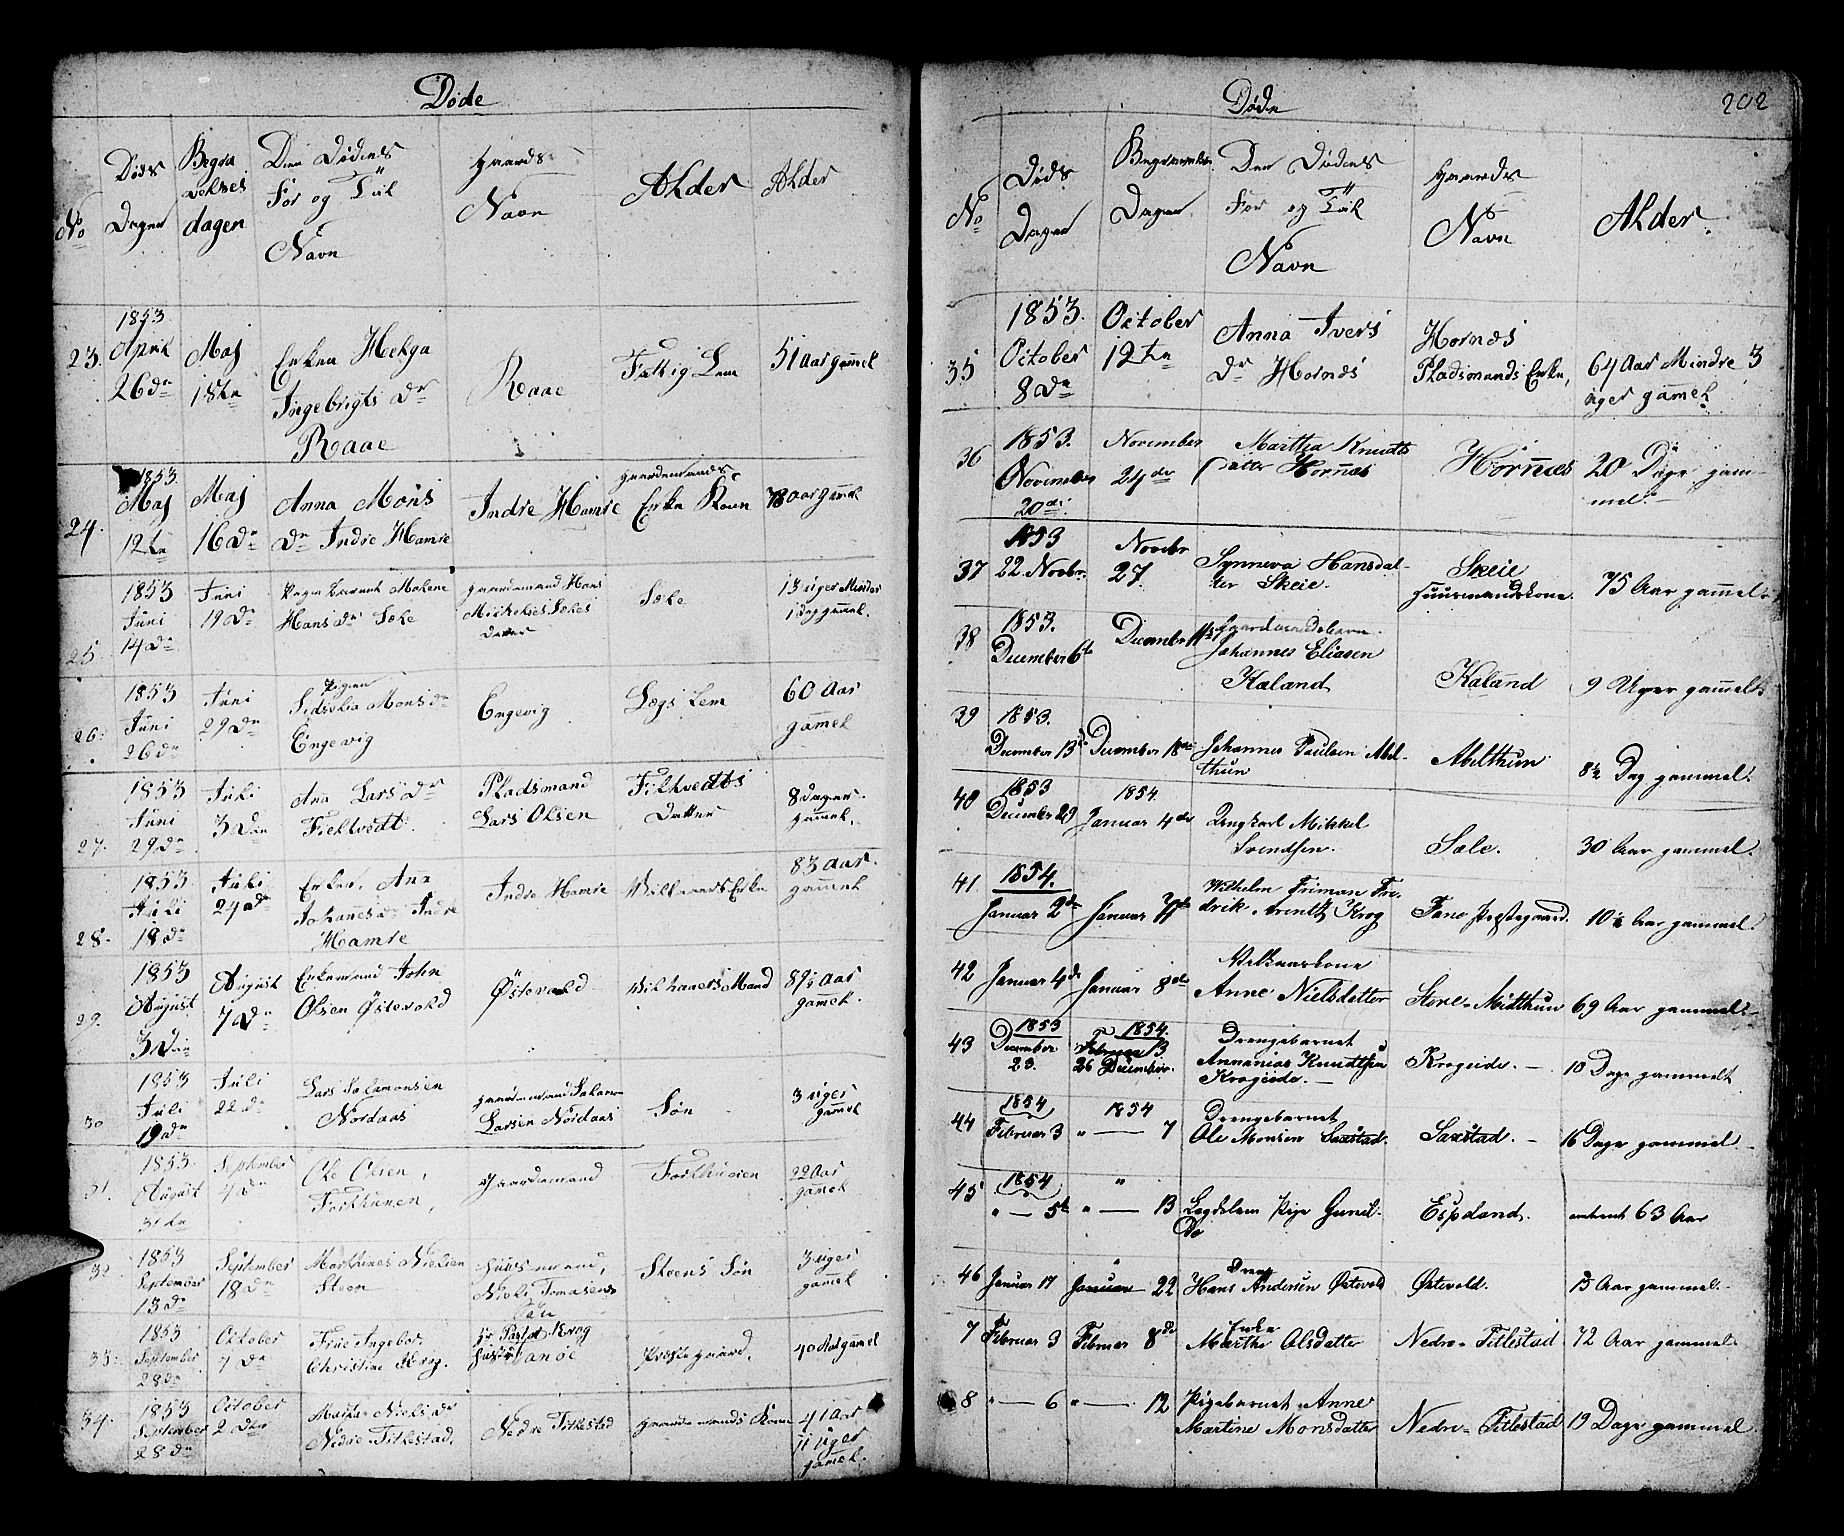 Døde
No
Døds
Dagen
Begra
velses
dagen
Den Dødens
For og Til
Navn
Gaards
Navn
Alder
Alder
23.
1853.
April
26de
Maj
18te
Enken Helga
Ingebrigts Dr
Raae
Raae
Fattig Lem
51 Aar gammel
24.
1853.
Maj
12te
Maj
16de
Anna Mons
Dr Indre Hamre
Indre Hamre
Gaardemands
Enke Koen
78 Aar gamel
25.
1853
Juni
14de
Juni
19de
Pige barnet Malene
Hans Dr Sæle
gaardemand Hans
Mickelsens Sæles
Datter
Sæle
13 uger Minder
1 dag gammel.
26.
1853
Juni
26de
Juni
29de
Pigen
Sidselia Mons dr
Engevig
Engevig
Lægs Lem
60 Aar
gammel
27.
1853
Juni
29de
Juli
3die
Ana Lars Dr
Fieltvedt.
Pladsmand
Lars Olsen
Fieltvedts
Datter
8 dager.
gammel.
28.
1853
Juli
18de
Juli
24de
Enken. Ane
Johannes dr Indre
Hamre
Indre Hamre
Vilkaars Enke
83 Aar.
gammel
29.
1853
August
3die
August
7de
Enkemand John
Olsen Østevold
Østevold
Vilkaars Mand
89½ Aar
gamel.
30.
1853
Juli
19de
Juli
22de
Lars Salamonsen
Nordaas
gaardemand Salamon
Larsen Nordaas
Søn
3 uger
gammel
31.
1853.
August
31te
September
4de
Ole Olsen,
Forthunen,
gaardemand
Forthunen
22 Aar
gammel
32
1853
September
13de
September
18de
Marthines Nielsen
Steen
Huusmand,
Niels Tomasens
Søn
Steens Søn
3 uger
gammel
33.
1853
September
28de
October
7de
Frue Ingebor.
Christine Krog.
Hr Pastor Krog
Hustru Fanøe
Præste gaard.
40 Aar gammel
34.
1853
September
28de
October
2den
Niels dr
Nedre Titlestad.
Nedre Titlestad
gaardemands Kone
41 Aar
11 uger
gamel.
Døde
202
No
Døds
Dagen
Begravelses
Dagen
Den Dødens
For og Til
Navn
Gaards
Navn
Alder.
35
1853.
October
8de
October
12te
Anna Ivers
Dr Hornæs
Hornæs
Pladsmands Enke,
64 Aar Mindre 3
uger gamel.
36
1853.
November
20de
November
24de
Marthe Knuds
datter Hornæs
Hornæs
20 Dage gam-
mel.
37
1853
22. Novbr.
Novbr
27.
Synneva Hansdat-
ter Skeie.
Skeie
Huusmandskone.
75 Aar gammel.
38
1853.
December 6te
December 11te
Gaardmandsbarn.
Johannes Eliasen
Kaland
Kaland
9 Uger gammelt
39
1853.
December 13de
December 18de
Johannes Paulsen Abel-
thun
Abelthun
8½ Dag gammel.
40
1853
December 29
1854.
Januar 4de
Ungkarl Mikkel
Svendsen.
Sæle.
30 Aar gammel.
41
1854.
Januar 2de
Januar 11te
Wilhelm Friman Fre-
drik Arentz Krog
Fanø Præstegaard.
10½ Aar gammel.
42
Januar 4de
Januar 8de
Vilkaarskone
Anne Nielsdatter
Store-Mitthun
69 Aar gammel
43
1853
December
23.
1854.
Februar 13
26 December.
Drengebarnet
Annanias Knudtsen
Krogeide.
Krogeide.
10 Dage gammelt
44
1854
Februar 3
1854
" — 7
Drengebarnet
Ole Monsen Saxstad.
Saxstad.
16 Dage gammel
45
1854
" — 5te
"
" — 13
Lægdelem Pige Gunil-
do
Espeland.
omtrent 63 Aar
46
Januar 17
"
Januar 22
Dreng
Hans Andersen Østevold
Østevold.
15 Aar gammel.
7
Februar 3
Februar 8de
Enke
Marthe Olsdatter
Nedre-Titlestad
72 Aar gammel
8
" — 6
" — 12
Pigebarnet Anne
Martine Monsdatter
Nedre-Titlestad
19 Dage gammel